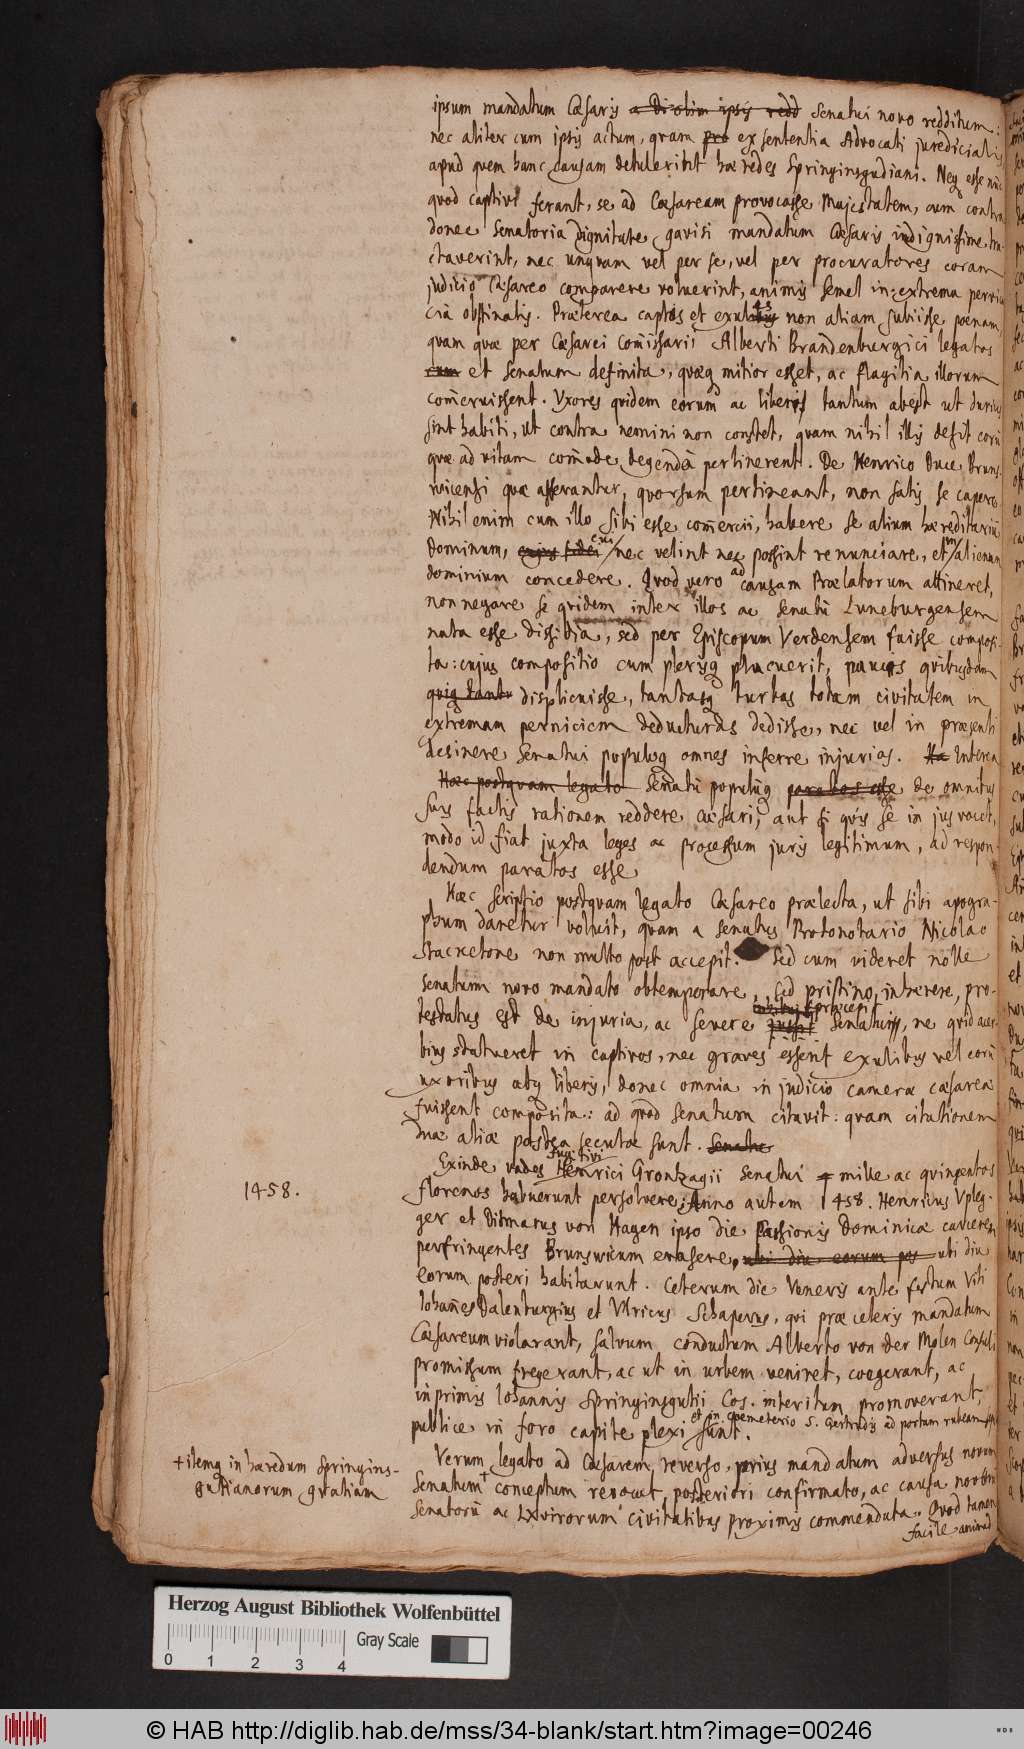 ipsum mandatum Cæsaris a Di olim ipsis redd Senatui novo redditum:
nec aliter cum ipsis actum, quam pro ex sententia Advocati juredicialis
apud quem hanc causam detulerint hæredes Springinsgudiani. Neq esse nūc
quod captivi ferant, se ad Cæsaream provocasse Majestatem, cum contra
donec Senatoria dignitate gavisi mandatum Cæsaris indignissime tra-
ctaverint, nec unquam vel per se, vel per procuratores coram
judicio Cæsareo comparere voluerint, animis semel in extrema pervica
ciâ obstinatis. Præterea captos et exulibus non aliam subiisse pœnam,
quam quæ per Cæsarei Com̄issarii Alberti Brandenburgici legatos
cum et Senatum definita, quæq mitior esset, ac flagitia illorum
com̄eruissent. Uxores quidem eorum ac liberos tantum abest ut durius
sint habiti, ut contra nemini non constet, quam nihil illis desit eorū
quæ ad vitam com̄ode degendā pertinerent. De Henrico Duce Bruns-
vicensi quæ afferantur, quorsum pertineant, non satis se capere
Nihil enim cum illo sibi esse com̄ercii, habere se alium hæreditariū
Dominum, cujus fidei cui nec velint nec possint renunciare, et in alienum
dominium concedere. Quod vero ad causam Prælatorum attineret,
non negare se quidem inter illos ac Senatū Luneburgensem
nata esse dissidia, sed per Episcopum Verdensem fuisse composi-
ta: cujus compositio cum plerisq placuerit, paucis quibusdam
quiq tantū displicuisse, tantasq turbas totam civitatem in
extremam perniciem deducturas dedisse, nec vel in præsenti
desinere Senatui populoq omnes inferre injurias. Ha Interea
Hæc postquam legato Senatū populūq paratos esse de omnibus
suis factis rationem reddere Cæsari, aut si quis se in jus vocet,
modo id fiat juxta leges ac processum juris legitimum, ad respon-
dendum paratos esse
Hæc scriptio postquam legato Cæsareo prælecta, ut sibi apogra-
phum daretur voluit, quam a senatus Protonotario Nicolao
Stacketone non multo post accepit. Sed cum videret nolle
Senatum novo mandato obtemperare, sed pristino inhærere, pro-
testatus est de injuria, ac severe jussit præcepit Senatui, ne quid acer-
bius statueret in captivos, nec graves essent exulibus vel eorū
uxoribus atq liberis, donec omnia in judicio cameræ cæsareæ
fuissent composita: ad quod Senatum citavit: quam citationem
duæ aliæ postea secutæ sunt. Senatus
Exinde vades fugitivi Henrici Grontzagii Senatui mille ac quingentos
florenos habuerunt persolvere. Anno autem 1458. Henricus Vpleg-
ger et Ditmarus von Hagen ipso die Passionis Dominicæ carcerem
perfringentes Brunswicum evasere, ubi diu eorum pos ubi diu
eorum posteri habitarunt. Ceterum die Veneris ante festum Viti
Johan̄es Dalenturgius et Ulricus Schaperus, qui præ ceteris mandatum
Cæsareum violarant, salvum conductum Alberto von der Molen Consuli
promissum fregerant, ac ut in urbem veniret, coegerant, ac
inprimis Johannis Springinsgutii Cos. interitum promoverant,
publice in foro capite plexi sunt. et in Coemeterio S. Gertrudis ad portam rubeam
Verum legato ad Cæsarem reverso, prius mandatum adversus novum
Senatum + conceptum revocat, posteriori confirmato, ac causa novorū
Senatorū ac LXvirorum civitatibus proximis commendata. Quod tamen
facile animad
1458.
+ itemq in hæredum Springins-
gutianorum gratiam
Herzog August Bibliothek Wolfenbüttel
0 1 2 3 4
Gray Scale
© HAB http://diglib.hab.de/mss/34-blank/start.htm?image=00246